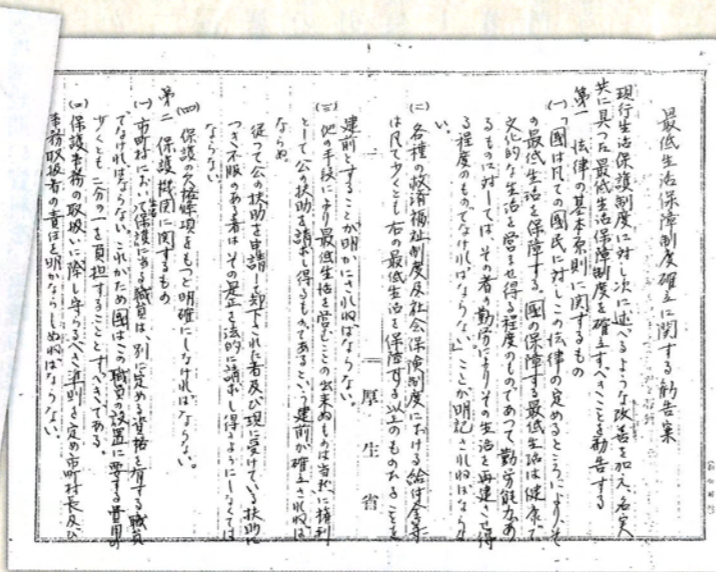 最低生活保障制度確立に関する勧告案
現行生活保護制度に対し次に述べるような改善を加え、名実
共に具った最低生活保障制度を確立すべきことを勧告する
第一 法律の基本原則に関するもの
(一)「國は凡ての國民に対しこの法律の定めるところによりそ
の最低生活を保障する。國の保障する最低生活は健康で
文化的な生活を営ませ得る程度のものであつて、勤労能力あ
るものに対しては、その者の勤労によりその生活を再建させ得
る程度のものでなければならない」ことが明記されねばならな
い。
(二) 各種の救済福祉制度及社会保険制度における給付金等
は凡て少くとも右の最低生活を保障する以上のものたることを
建前とすることが明かにされねばならない。
厚生省
(三) 他の手段により最低生活を営むことの出来ぬものは当然に権利
として公の扶助を請求し得るものであるという建前が確立されねば
ならぬ
従つて公の扶助を申請し却下された者及び現に受けている扶助に
つき不服のある者はその是正を法的に請求し得るようにしなくては
ならない
(四) 保護の欠格條項をもつと明確にしなければならない。
第二 保護機関に関するもの
(一) 市町村において生活保護にあたる職員は、別に定める資格を有する職員
でなければならない これがため國はこの職員の設置に要する費用の
少くとも二分の一を負担することとすべきである。
保護事務の取扱いに際し守らるべき準則を定め市町村長及び
事務取扱者の責任を明かならしめねばならない。